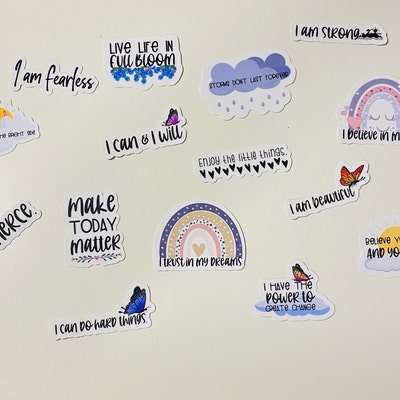 I am strong
LIVE LIFE IN
FULL BLOOM
I am fearless
STORMS DON'T LAST FOREVER
BRIGHT SIDE
I can & I will
I believe in m
Enjoy the little things.
I am beautiful
ERCE.
make
TODAY
matter
I TRUST IN MY DREAMS
BELIEVE YO
AND YO
I HAVE THE
POWER TO
CREATE CHANGE
I CAN DO HARD THINGS.